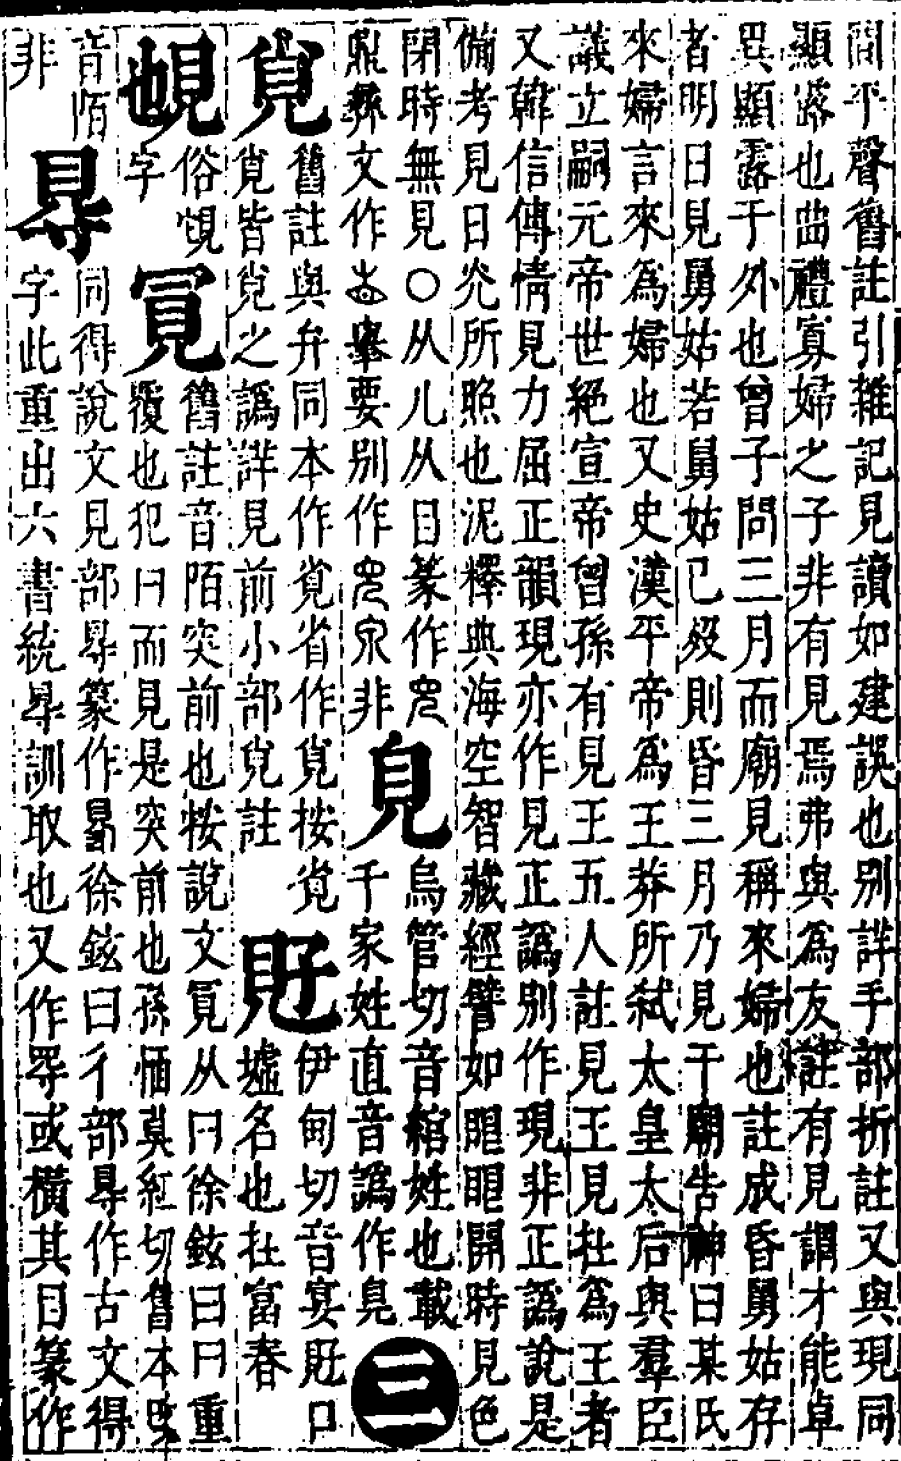 間平聲舊註引雜記見讀如建誤也別詳手部折註又與現同
顯露也曲禮寡婦之子非有見焉弗與為友註有見謂才能卓
異顯露于外也曾子問三月而廟見稱來婦也註成昏舅姑存
者明日見舅姑若舅姑已歿則昏三月乃見于廟告神曰某氏
來婦言來為婦也又史漢平帝為王莽所弒太皇太后與羣臣
議立嗣元帝世絕宣帝曾孫有見王五人註見王見在為王者
又韓信傳情見力屈正韻現亦作見正譌別作現非正譌說是
備考見日光所照也泥釋典海空智藏經譬如眼眼開時見色
閉時無見○从儿从目篆作
鼎彝文作 舉要別作 非
見
烏管切音綰姓也載
千家姓直音譌作見
三
覍
舊註與弁同本作覍省作覍按覍
覍皆覍之譌詳見前小部覍註
𧠇
伊甸切音宴 口
墟名也在富春
俗覘
字
冟
舊註音陌突前也按說文 从冃徐鉉曰冃重
覆也犯冃而見是突前也孫愐莫紅切舊本
音陌
非
㝵
同得說文見部㝵篆作 徐鉉曰彳部㝵作古文得
字此重出六書統㝵訓取也又作㝵或橫其目篆作